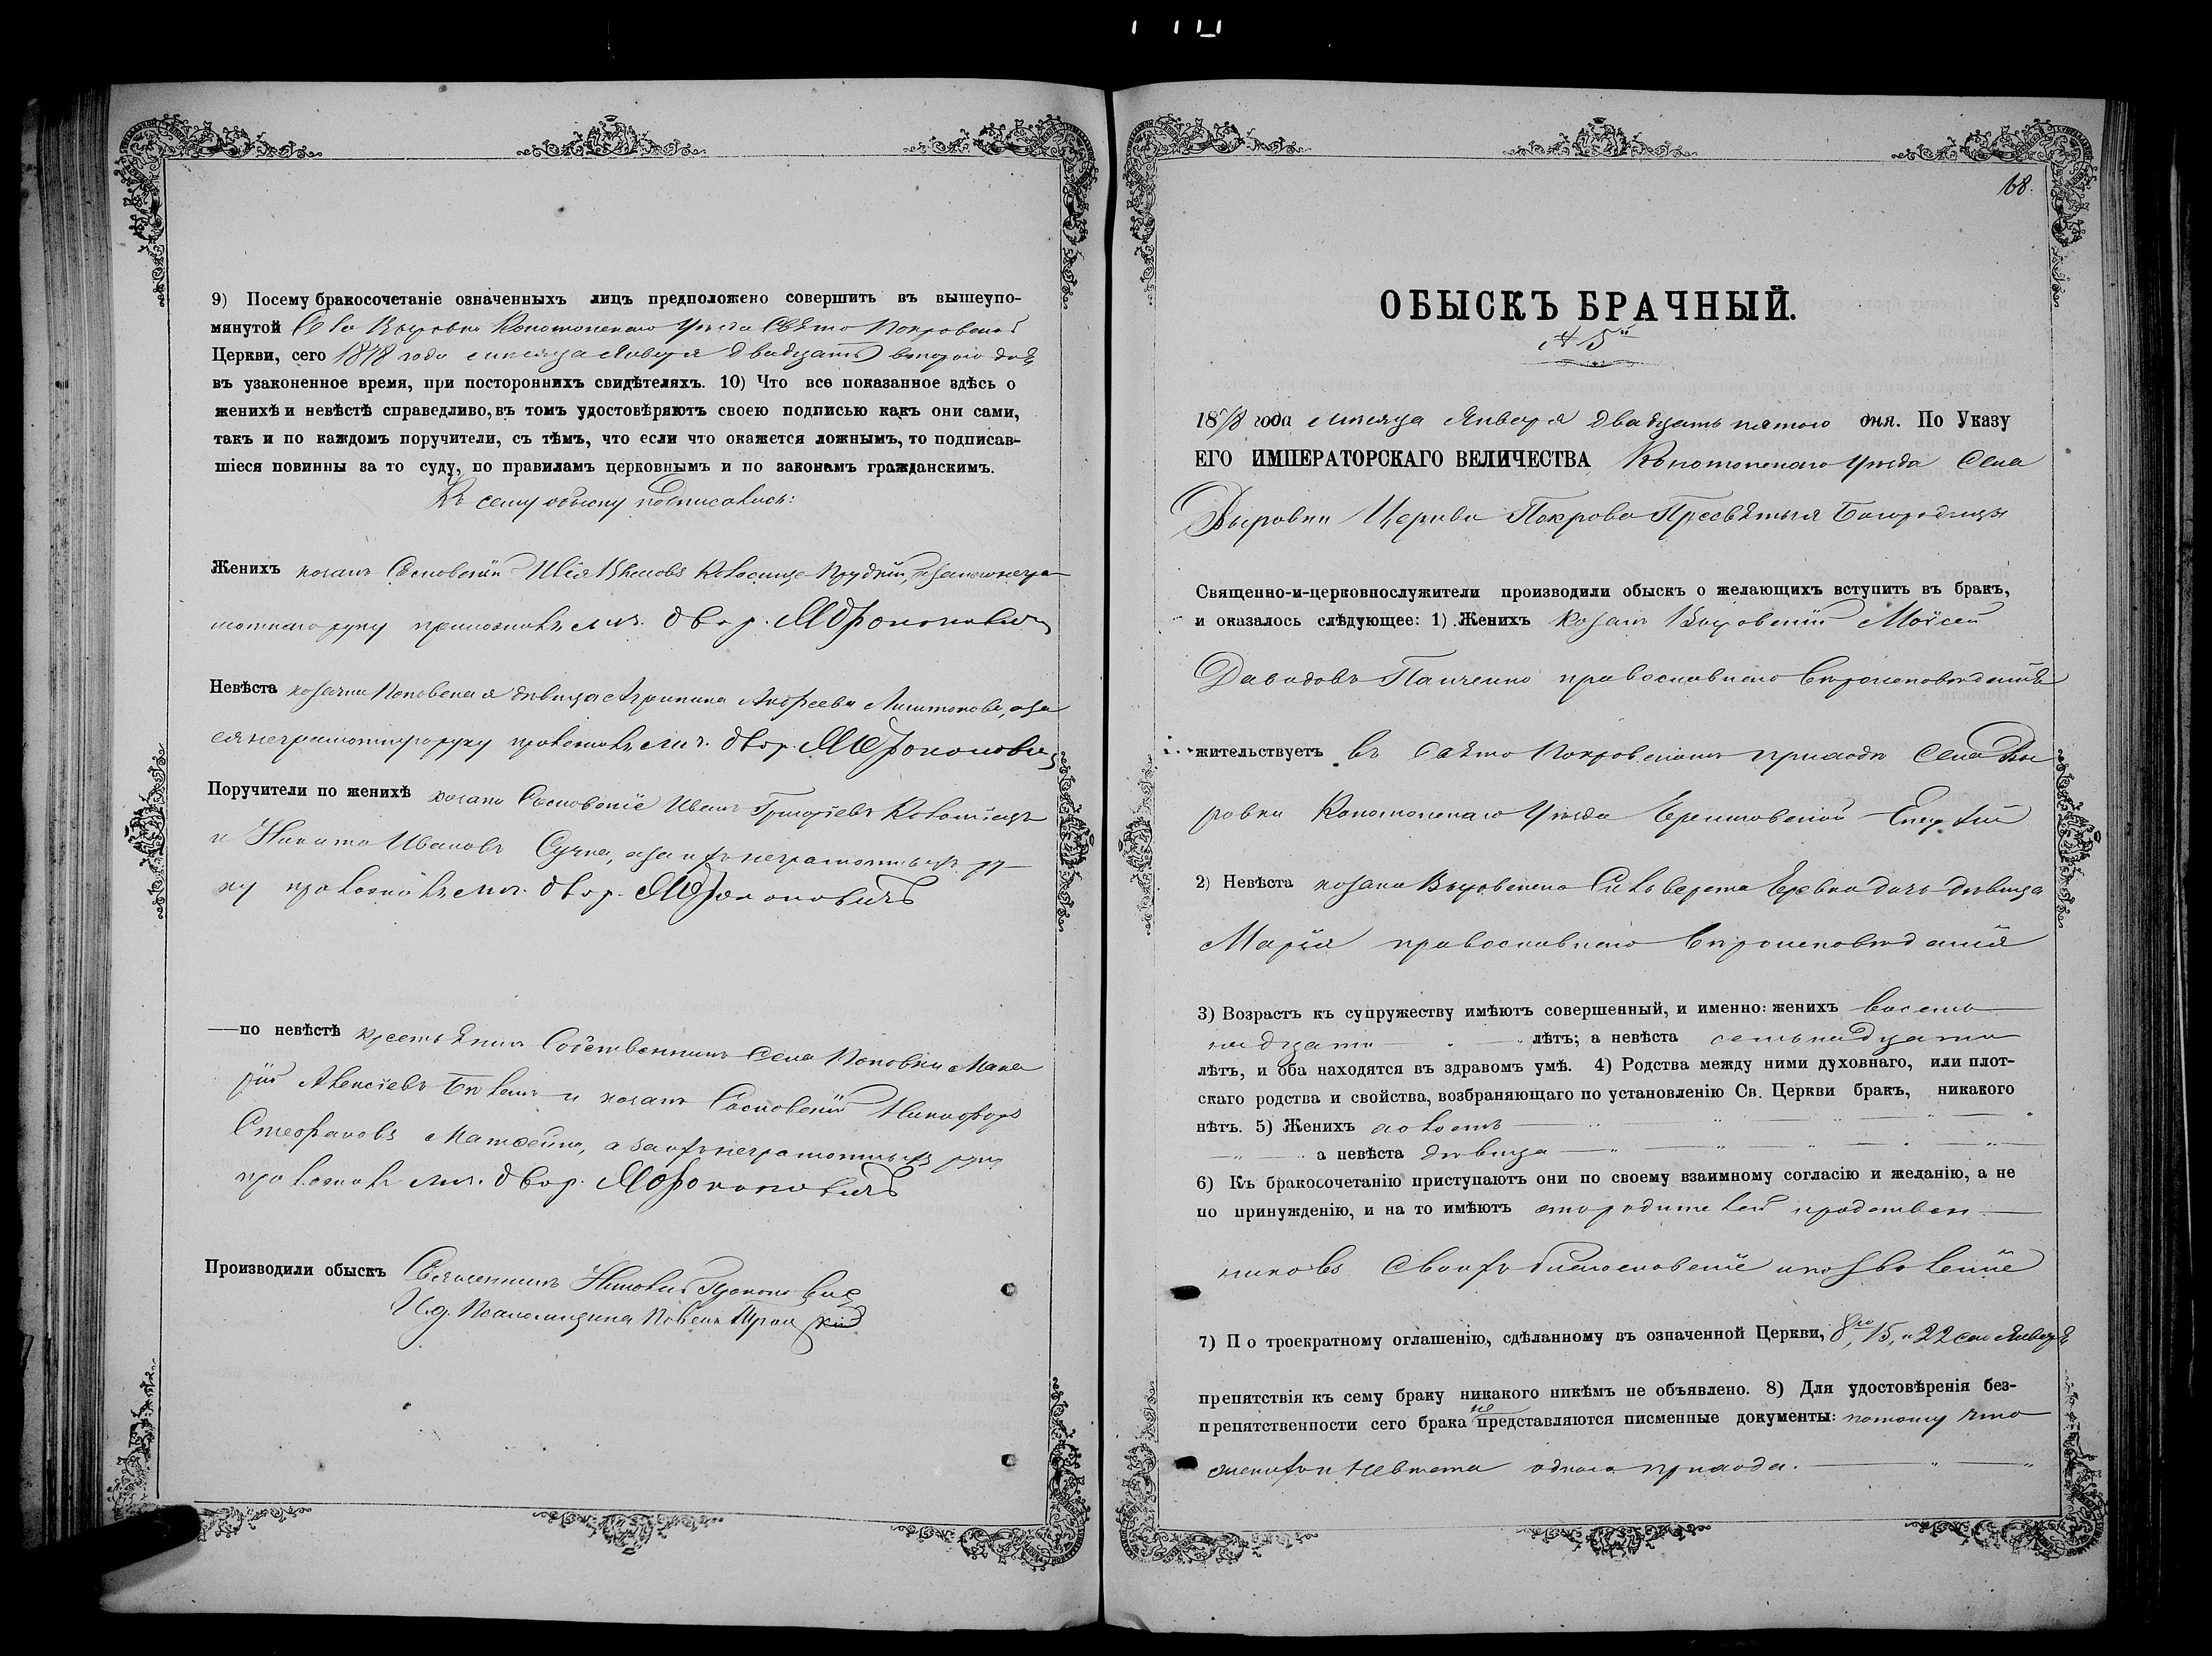 9) Посему бракосочетаніе означенныхъ лицъ предположено совершить въ вышеупо-
мянутой Села Вировки Конотопскаго Уѣзда Свято Покровской
Церкви, сего 1878 года мѣсяца Января двадцать второго дня
въ узаконенное время, при постороннихъ свидѣтеляхъ. 10) Что все показанное здѣсь о
женихѣ и невѣстѣ справедливо, въ томъ удостовѣряютъ своею подписью какъ они сами,
такъ и по каждомъ поручители, съ тѣмъ, что если что окажется ложнымъ, то подписав-
шіеся повинны за то суду, по правиламъ церковнымъ и по законамъ гражданскимъ.
Къ сему обыску подписались:
Женихъ козакъ Сосновскій Илія неграмот-
наго руку приложилъ лич. двор. Прокоповичъ
Невѣста козачка Поповская дѣвица Агрипина Андреева а за
нея неграмотную руку приложилъ лич. двор. Прокоповичъ
Поручители по женихѣ козаки Сосновскіе Иванъ Григоріевъ Коломіецъ
и Никита Ивановъ а за ихъ неграмотныхъ ру-
ку приложилъ лич. двор. Прокоповичъ
—по невѣстѣ крестьянинъ Собственникъ Села Поповки Мака
рій Алексіевъ и козакъ Сосновскій Никифоръ
Стефановъ а за ихъ неграмотныхъ руку
приложилъ лич. двор. Прокоповичъ
Производили обыскъ Священникъ Николай Прокоповичъ
И. д. Псаломщика
168.
ОБЫСКЪ БРАЧНЫЙ.
№ 5й
1878 года мѣсяца Января двадцать пятого дня. По Указу
ЕГО ИМПЕРАТОРСКАГО ВЕЛИЧЕСТВА Конотопскаго Уѣзда Села
Выровки Церкви Покрова Пресвятыя Богородицы
Священно-и-церковнослужители производили обыскъ о желающихъ вступить въ бракъ,
и оказалось слѣдующее: 1) Женихъ Козакъ Выровскій Моѵсей
Давидовъ Панченко православнаго вѣроисповѣданія
жительствуетъ въ Свято Покровскомъ приходѣ Села Вы
ровки Конотопскаго Уѣзда Черниговской Епархіи
2) Невѣста козака Выровскаго дочь дѣвица
Марія православнаго вѣроисповѣданія
3) Возрастъ къ супружеству имѣютъ совершенный, и именно: женихъ восемь—
надцати — лѣтъ; а невѣста семьнадцати
лѣтъ, и оба находятся въ здравомъ умѣ. 4) Родства между ними духовнаго, или плот-
скаго родства и свойства, возбраняющаго по установленію Св. Церкви бракъ, никакого
нѣтъ. 5) Женихъ холостъ —
— а невѣста дѣвица —
6) Къ бракосочетанію приступаютъ они по своему взаимному согласію и желанію, а не
по принужденію, и на то имѣютъ отъ родителей и родствен—
никовъ своихъ благословеніе и позволеніе
7) По троекратному оглашенію, сдѣланному въ означенной Церкви, 8го, 15, и 22 сего Января
препятствія къ сему браку никакого никѣмъ не объявлено. 8) Для удостовѣренія без-
препятственности сего брака не представляются писменные документы: потому что
женихъ и невѣста одного прихода.